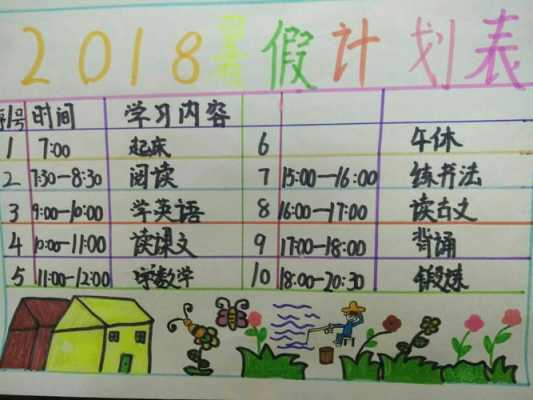 2018暑假计划表
序号 时间 学习内容
1 7:00 起床 6 午休
2 7:30—8:30 阅读 7 15:00—16:00 练书法
3 9:00—10:00 学英语 8 16:00—17:00 读古文
4 10:00—11:00 读课文 9 17:00—18:00 背诵
5 11:00—12:00 学数学 10 18:00—20:30 锻炼